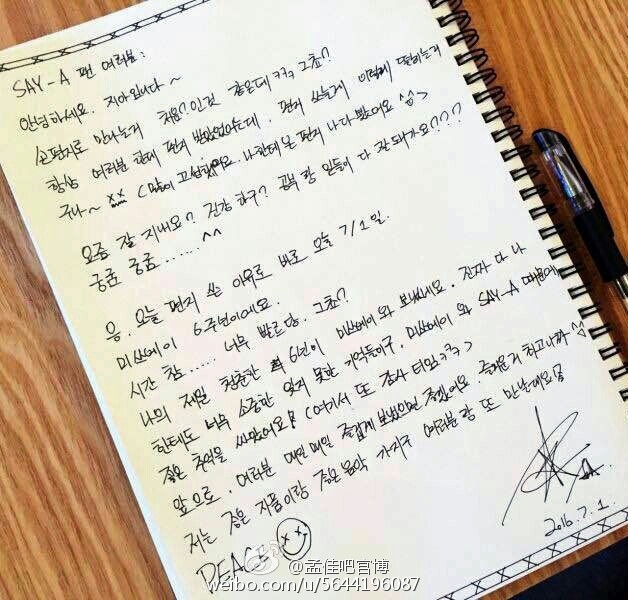 SAY-A 팬 여러분:
안녕하세요. 지아입니다~
손편지로 만나는게 처음?인것 같은데 ㅋㅋㅋ 그쵸?
항상 여러분 한테 편지 받았었는데, 편지 쓰는게 이렇게 떨리는거
구나~ xx (많이 고심했어요. 나한테 온 편지 나 다 봤어요 ^^>
요즘 잘 지내요? 건강하구? 공부랑 일들이 다 잘 돼가요???
궁금 궁금...... ^^
응. 오늘 편지 쓴 이유로 바로 오늘 7/1일.
미쓰에이 6주년이예요.
시간 참..... 너무 빠르당. 그쵸?
나의 제일 청춘한 6년이 미쓰에이와 보냈네요. 진짜 다 나
한테도 너무 소중한 잊지 못한 기억들이구. 미쓰에이와 SAY-A 때문에
좋은 추억을 쌓았어요! (여기서 또 감사 타임 ㅋㅋㅋ>
앞으로, 여러분 매일매일 즐겁게 보냈으면 좋겠어요. 즐거운거 하고
저는 좋은 작품이랑 좋은 음악 가지구 여러분 항 또 만날께요!
PEACE
2016.7.1.
孟佳吧官博
weibo.com/u/5644196087